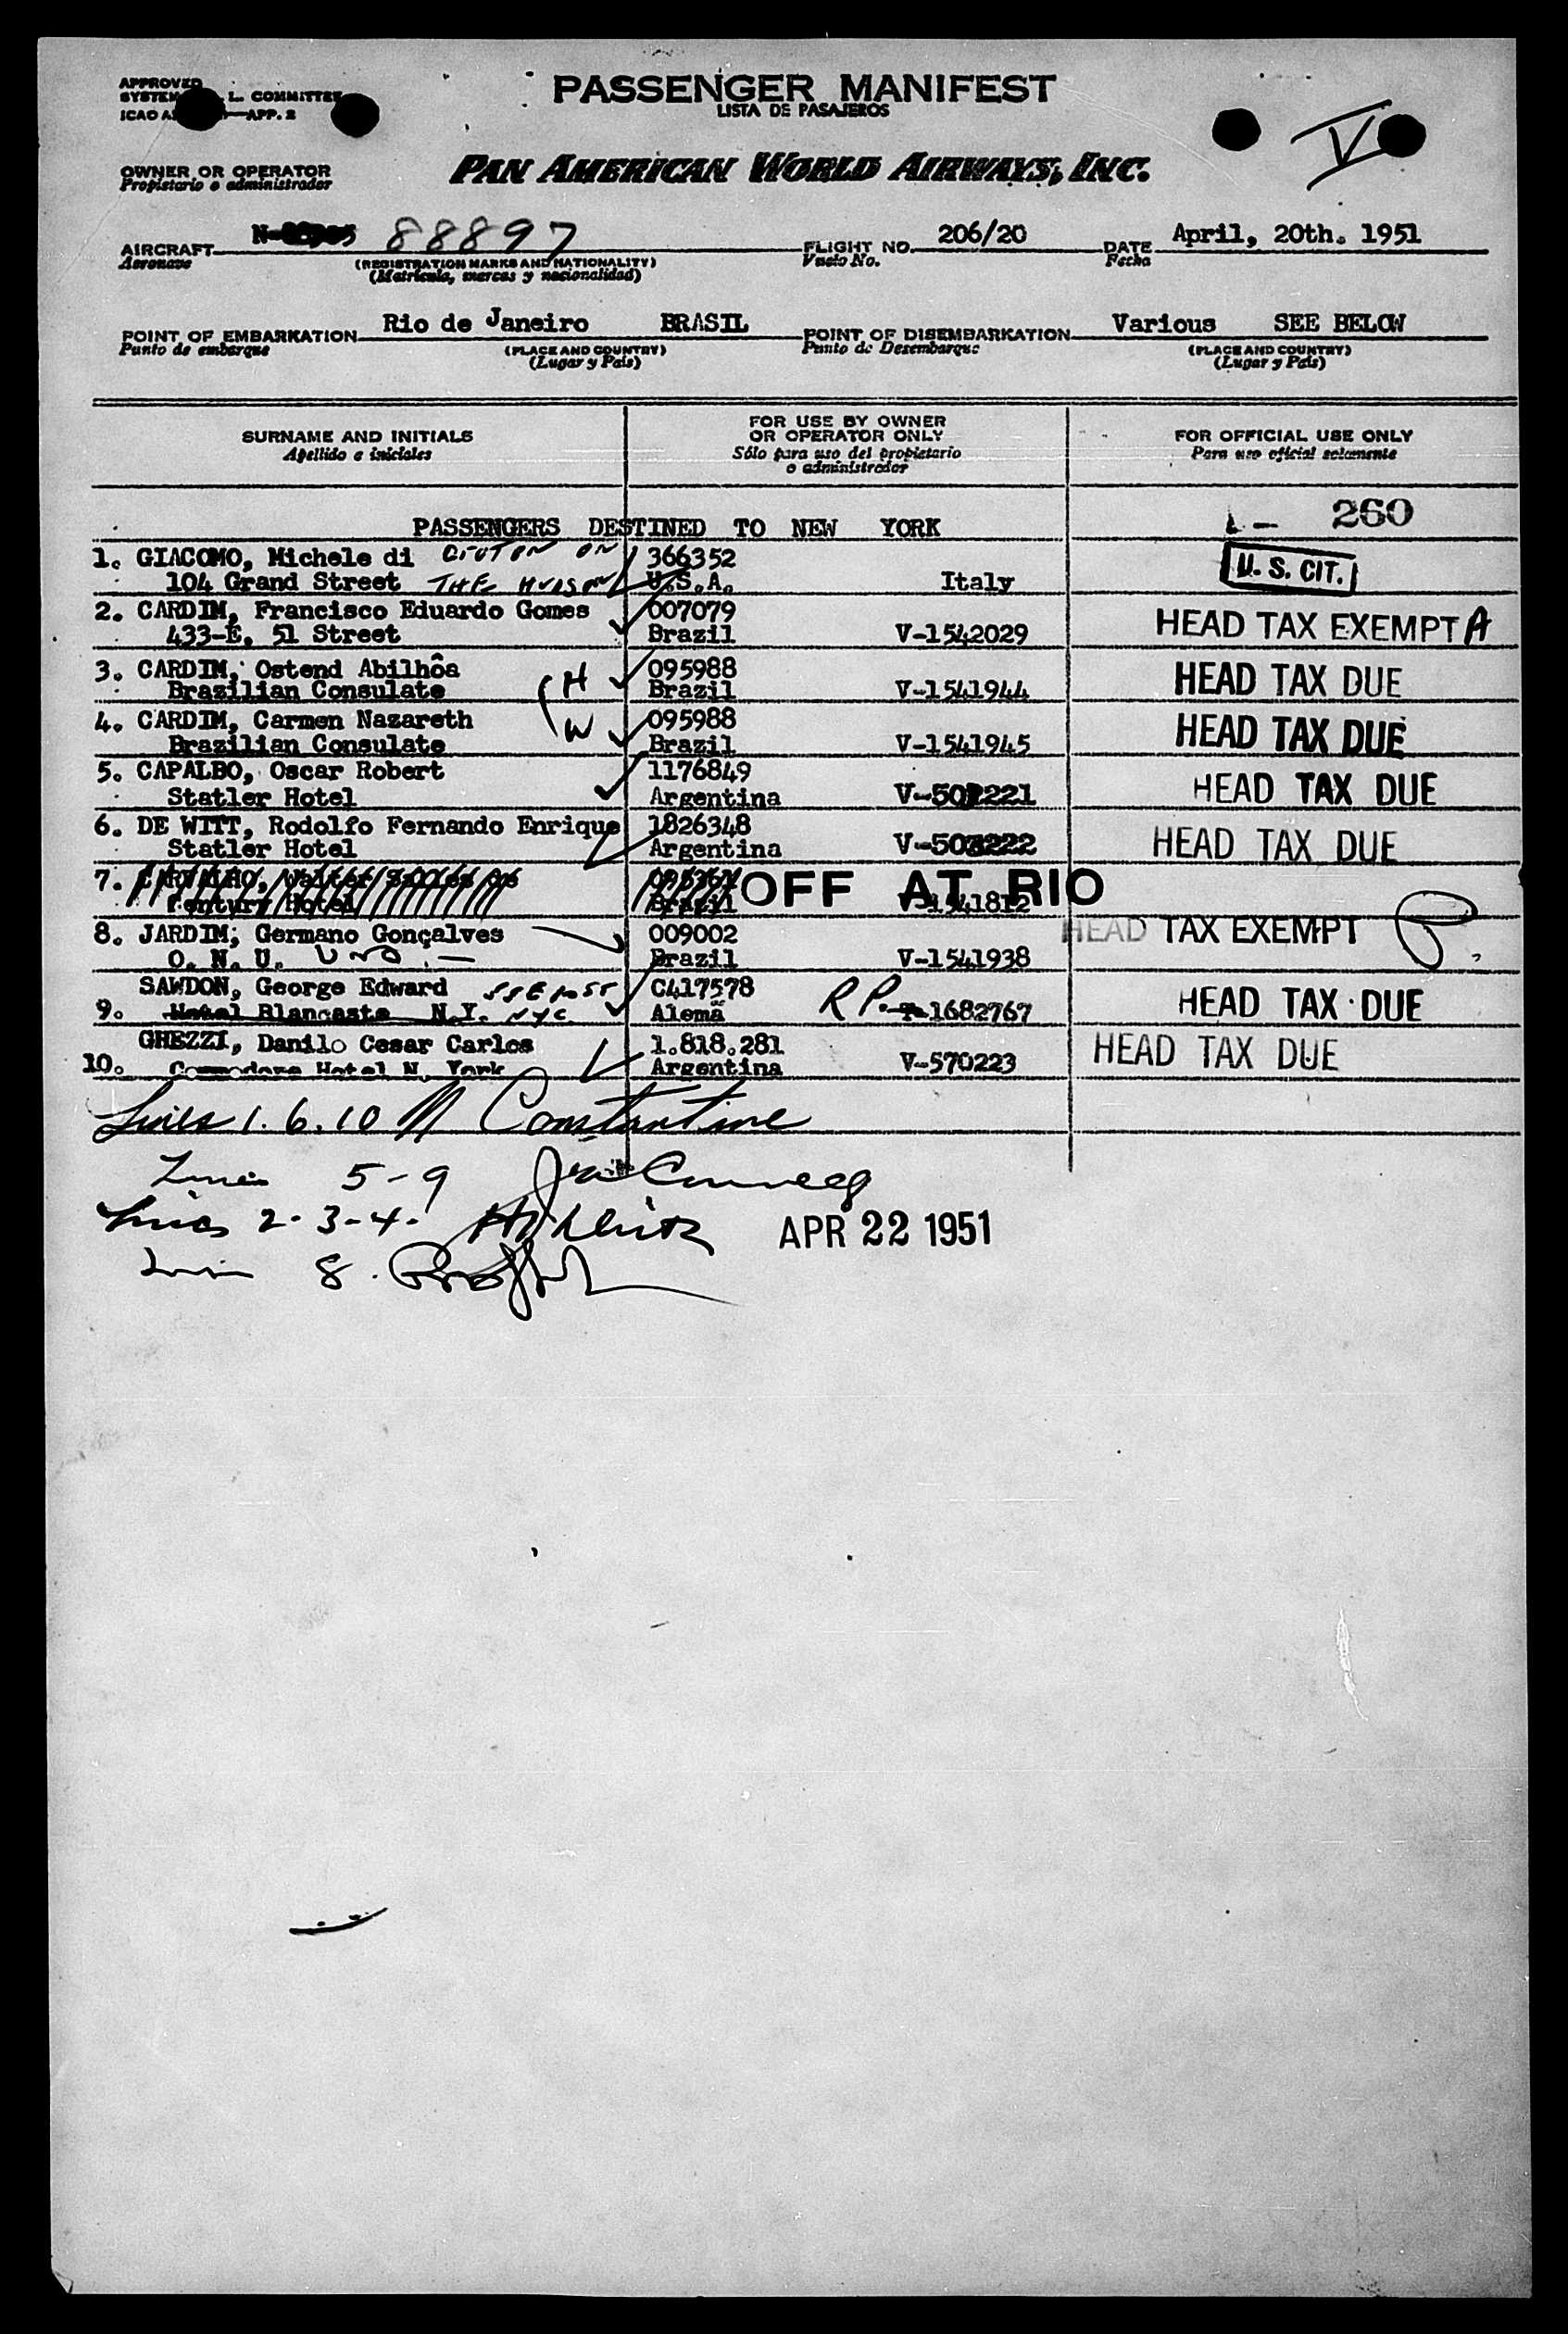 APPROVED
SYSTEM L. COMMITTEE
ICAO A —APP. 2
PASSENGER MANIFEST
LISTA DE PASAJEROS
V
OWNER OR OPERATOR
Propietario o administrador
PAN AMERICAN WORLD AIRWAYS, INC.
AIRCRAFT N- 88897 FLIGHT NO. 206/20 DATE April, 20th. 1951
Aeronave (REGISTRATION MARKS AND NATIONALITY) Vuelo No. Fecha
(Matrícula, marcas y nacionalidad)
POINT OF EMBARKATION Rio de Janeiro BRASIL POINT OF DISEMBARKATION Various SEE BELOW
Punto de embarque (PLACE AND COUNTRY) Punto de Desembarque (PLACE AND COUNTRY)
(Lugar y País) (Lugar y País)
SURNAME AND INITIALS
Apellido e iniciales
FOR USE BY OWNER
OR OPERATOR ONLY
Sólo para uso del propietario
o administrador
FOR OFFICIAL USE ONLY
Para uso oficial solamente
PASSENGERS DESTINED TO NEW YORK 260
1. GIACOMO, Michele di CROTON ON 366352 U. S. CIT.
104 Grand Street THE HUDSON U.S.A. Italy
2. CARDIM, Francisco Eduardo Gomes 007079 HEAD TAX EXEMPT A
433-E, 51 Street Brazil V-1542029
3. CARDIM, Ostend Abilhôa H 095988 HEAD TAX DUE
Brazilian Consulate Brazil V-1541944
4. CARDIM, Carmen Nazareth W 095988 HEAD TAX DUE
Brazilian Consulate Brazil V-1541945
5. CAPALBO, Oscar Robert 1176849 HEAD TAX DUE
Statler Hotel Argentina V-501221
6. DE WITT, Rodolfo Fernando Enrique 1826348 HEAD TAX DUE
Statler Hotel Argentina V-503222
7. OFF AT RIO
Century Hotel Brazil V-1541812
8. JARDIM, Germano Gonçalves 009002 HEAD TAX EXEMPT
O. N. U. UNO Brazil V-1541938
SAWDON, George Edward C417578 HEAD TAX DUE
9. Hotel Blancaste N.Y. NYC Alemã R P. 1682767
GHEZZI, Danilo Cesar Carlos 1.818.281 HEAD TAX DUE
10. Commodore Hotel N. York Argentina V-570223
Lines 1. 6. 10 M Constantine
Lines 5-9
Lines 2-3-4- APR 22 1951
Line 8.